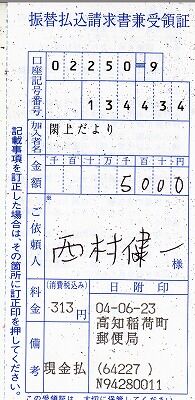 振替払込請求書兼受領証
口座記号番号
02250-9
134434
加入者名
閖上だより
金額
千百十万千百十円
5000
ご依頼人
※
西村健一
様
料金
(消費税込み)
313円
日附印
04-06-23
高知稲荷町
郵便局
備考
現金払
(64227)
N94280011
記載事項を訂正した場合は、その箇所に訂正印を押してください。
この受領証は、大切に保管してください。